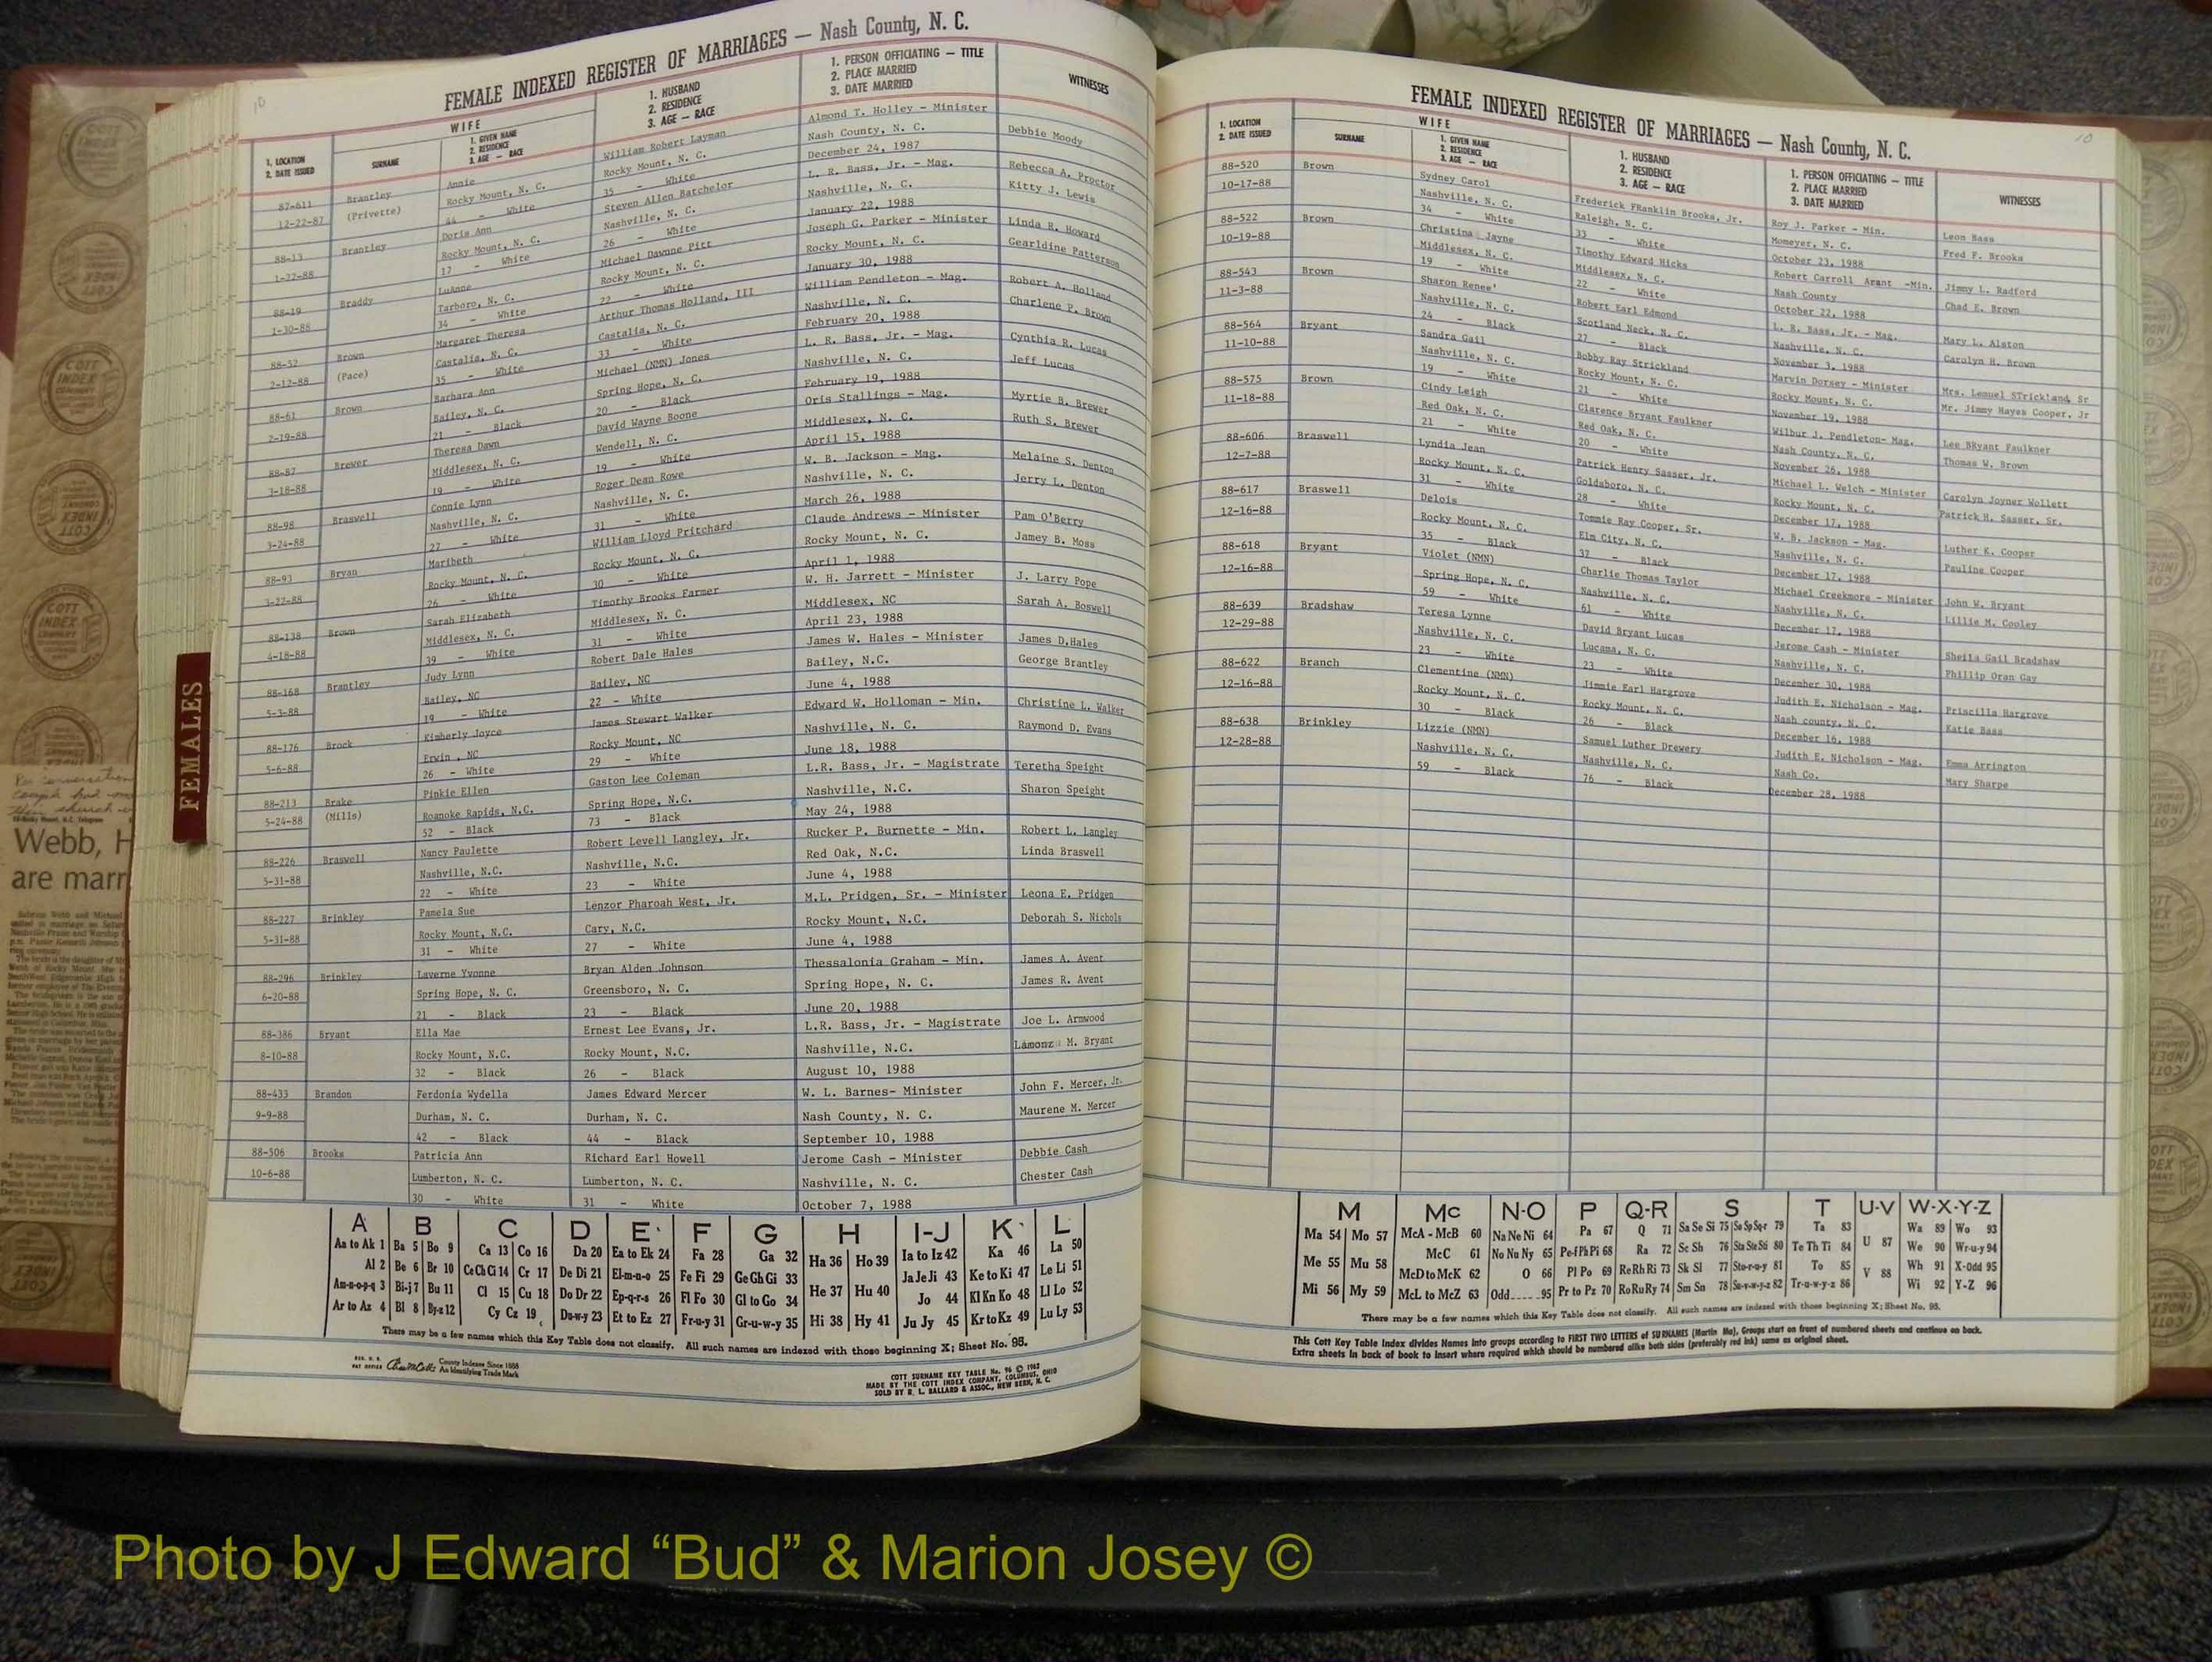 FEMALE INDEXED REGISTER OF MARRIAGES — Nash County, N. C.
10
1. LOCATION
2. DATE ISSUED
WIFE
SURNAME
1. GIVEN NAME
2. RESIDENCE
3. AGE — RACE
1. HUSBAND
2. RESIDENCE
3. AGE — RACE
1. PERSON OFFICIATING — TITLE
2. PLACE MARRIED
3. DATE MARRIED
WITNESSES
87-611 Brantley Annie William Robert Layman Almond T. Holley - Minister Debbie Moody
12-22-87 (Privette) Rocky Mount, N. C. Rocky Mount, N. C. Nash County, N. C. Rebecca A. Proctor
44 - White 35 - White December 24, 1987
88-13 Brantley Doris Ann Steven Allen Batchelor L. R. Bass, Jr. - Mag. Kitty J. Lewis
1-22-88 Rocky Mount, N. C. Nashville, N. C. Nashville, N. C. Linda R. Howard
17 - White 26 - White January 22, 1988
88-19 Braddy LuAnne Michael Dawnne Pitt Joseph G. Parker - Minister Gearldine Patterson
1-30-88 Tarboro, N. C. Rocky Mount, N. C. Rocky Mount, N. C. Robert A. Holland
34 - White 22 - White January 30, 1988
88-52 Brown Margaret Theresa Arthur Thomas Holland, III William Pendleton - Mag. Charlene P. Brown
2-12-88 (Pace) Castalia, N. C. Castalia, N. C. Nashville, N. C. Cynthia R. Lucas
35 - White 33 - White February 20, 1988
88-61 Brown Barbara Ann Michael (NMN) Jones L. R. Bass, Jr. - Mag. Jeff Lucas
2-19-88 Bailey, N. C. Spring Hope, N. C. Nashville, N. C.
21 - Black 20 - Black February 19, 1988
88-87 Brewer Theresa Dawn David Wayne Boone Oris Stallings - Mag. Myrtie B. Brewer
3-18-88 Middlesex, N. C. Wendell, N. C. Middlesex, N. C. Ruth S. Brewer
19 - White 19 - White April 15, 1988
88-98 Braswell Connie Lynn Roger Dean Rowe W. B. Jackson - Mag. Melaine S. Denton
3-24-88 Nashville, N. C. Nashville, N. C. Nashville, N. C. Jerry L. Denton
27 - White 31 - White March 26, 1988
88-93 Bryan Maribeth William Lloyd Pritchard Claude Andrews - Minister Pam O'Berry
3-22-88 Rocky Mount, N. C. Rocky Mount, N. C. Rocky Mount, N. C. Jamey B. Moss
26 - White 30 - White April 1, 1988
88-138 Brown Sarah Elizabeth Timothy Brooks Farmer W. H. Jarrett - Minister J. Larry Pope
4-18-88 Middlesex, N. C. Middlesex, N. C. Middlesex, NC Sarah A. Boswell
39 - White 31 - White April 23, 1988
88-168 Brantley Judy Lynn Robert Dale Hales James W. Hales - Minister James D.Hales
5-3-88 Bailey, NC Bailey, NC Bailey, N.C. George Brantley
19 - White 22 - White June 4, 1988
88-176 Brock Kimberly Joyce James Stewart Walker Edward W. Holloman - Min. Christine L. Walker
5-6-88 Erwin , NC Rocky Mount, NC Nashville, N. C. Raymond D. Evans
26 - White 29 - White June 18, 1988
88-213 Brake Pinkie Ellen Gaston Lee Coleman L.R. Bass, Jr. - Magistrate Teretha Speight
5-24-88 (Mills) Roanoke Rapids, N.C. Spring Hope, N.C. Nashville, N.C. Sharon Speight
52 - Black 73 - Black May 24, 1988
88-226 Braswell Nancy Paulette Robert Levell Langley, Jr. Rucker P. Burnette - Min. Robert L. Langley
5-31-88 Nashville, N.C. Nashville, N.C. Red Oak, N.C. Linda Braswell
22 - White 23 - White June 4, 1988
88-227 Brinkley Pamela Sue Lenzor Pharoah West, Jr. M.L. Pridgen, Sr. - Minister Leona E. Pridgen
5-31-88 Rocky Mount, N.C. Cary, N.C. Rocky Mount, N.C. Deborah S. Nichols
31 - White 27 - White June 4, 1988
88-296 Brinkley Laverne Yvonne Bryan Alden Johnson Thessalonia Graham - Min. James A. Avent
6-20-88 Spring Hope, N. C. Greensboro, N. C. Spring Hope, N. C. James R. Avent
21 - Black 23 - Black June 20, 1988
88-386 Bryant Ella Mae Ernest Lee Evans, Jr. L.R. Bass, Jr. - Magistrate Joe L. Armwood
8-10-88 Rocky Mount, N.C. Rocky Mount, N.C. Nashville, N.C. Lamonz M. Bryant
32 - Black 26 - Black August 10, 1988
88-433 Brandon Ferdonia Wydella James Edward Mercer W. L. Barnes- Minister John F. Mercer, Jr.
9-9-88 Durham, N. C. Durham, N. C. Nash County, N. C. Maurene M. Mercer
42 - Black 44 - Black September 10, 1988
88-506 Brooks Patricia Ann Richard Earl Howell Jerome Cash - Minister Debbie Cash
10-6-88 Lumberton, N. C. Lumberton, N. C. Nashville, N. C. Chester Cash
30 - White 31 - White October 7, 1988
A B C D E F G H I-J K L
Aa to Ak 1 Ba 5 Bo 9 Ca 13 Co 16 Da 20 Ea to Ek 24 Fa 28 Ga 32 Ha 36 Ho 39 Ia to Iz 42 Ka 46 La 50
Al 2 Be 6 Br 10 Ce Ch Ci 14 Cr 17 De Di 21 El-m-n-o 25 Fe Fi 29 Ge Gh Gi 33 He 37 Hu 40 Ja Je Ji 43 Ke to Ki 47 Le Li 51
Am-n-o-p-q 3 Bi-j-7 Bu 11 Cl 15 Cu 18 Do Dr 22 Ep-q-r-s 26 Fl Fo 30 Gl to Go 34 Jo 44 Kl Kn Ko 48 Ll Lo 52
Ar to Az 4 Bl 8 By-z 12 Cy Cz 19 Du-w-y 23 Et to Ez 27 Fr-u-y 31 Gr-u-w-y 35 Hi 38 Hy 41 Ju Jy 45 Kr to Kz 49 Lu Ly 53
There may be a few names which this Key Table does not classify. All such names are indexed with those beginning X; Sheet No. 95.
REG. U. S.
PAT OFFICE
County Indexes Since 1888
An Identifying Trade Mark
COTT SURNAME KEY TABLE No. 96 © 1962
MADE BY THE COTT INDEX COMPANY, COLUMBUS, OHIO
SOLD BY R. L. BALLARD & ASSOC., NEW BERN, N. C.
FEMALE INDEXED REGISTER OF MARRIAGES — Nash County, N. C.
10
1. LOCATION
2. DATE ISSUED
WIFE
SURNAME
1. GIVEN NAME
2. RESIDENCE
3. AGE — RACE
1. HUSBAND
2. RESIDENCE
3. AGE — RACE
1. PERSON OFFICIATING — TITLE
2. PLACE MARRIED
3. DATE MARRIED
WITNESSES
88-520 Brown Sydney Carol Frederick FRanklin Brooks, Jr. Roy J. Parker - Min. Leon Bass
10-17-88 Nashville, N. C. Raleigh, N. C. Momeyer, N. C. Fred F. Brooks
34 - White 33 - White October 23, 1988
88-522 Brown Christina Jayne Timothy Edward Hicks Robert Carroll Arant -Min. Jimmy L. Radford
10-19-88 Middlesex, N. C. Middlesex, N. C. Nash County Chad E. Brown
19 - White 22 - White October 22, 1988
88-543 Brown Sharon Renee' Robert Earl Edmond L. R. Bass, Jr. - Mag. Mary L. Alston
11-3-88 Nashville, N. C. Scotland Neck, N. C. Nashville, N. C. Carolyn H. Brown
24 - Black 27 - Black November 3, 1988
88-564 Bryant Sandra Gail Bobby Ray Strickland Marvin Dorsey - Minister Mrs. Lemuel STrickland, Sr
11-10-88 Nashville, N. C. Rocky Mount, N. C. Rocky Mount, N. C. Mr. Jimmy Hayes Cooper, Jr
19 - White 21 - White November 19, 1988
88-575 Brown Cindy Leigh Clarence Bryant Faulkner Wilbur J. Pendleton- Mag. Lee BRyant Faulkner
11-18-88 Red Oak, N. C. Red Oak, N. C. Nash County, N. C. Thomas W. Brown
21 - White 20 - White November 26, 1988
88-606 Braswell Lyndia Jean Patrick Henry Sasser, Jr. Michael L. Welch - Minister Carolyn Joyner Wollett
12-7-88 Rocky Mount, N. C. Goldsboro, N. C. Rocky Mount, N. C. Patrick H. Sasser, Sr.
31 - White 28 - White December 17, 1988
88-617 Braswell Delois Tommie Ray Cooper, Sr. W. B. Jackson - Mag. Luther K. Cooper
12-16-88 Rocky Mount, N. C. Elm City, N. C. Nashville, N. C. Pauline Cooper
35 - Black 37 - Black December 17, 1988
88-618 Bryant Violet (NMN) Charlie Thomas Taylor Michael Creekmore - Minister John W. Bryant
12-16-88 Spring Hope, N. C. Nashville, N. C. Nashville, N. C. Lillie M. Cooley
59 - White 61 - White December 17, 1988
88-639 Bradshaw Teresa Lynne David Bryant Lucas Jerome Cash - Minister Sheila Gail Bradshaw
12-29-88 Nashville, N. C. Lucama, N. C. Nashville, N. C. Phillip Oran Gay
23 - White 23 - White December 30, 1988
88-622 Branch Clementine (NMN) Jimmie Earl Hargrove Judith E. Nicholson - Mag. Priscilla Hargrove
12-16-88 Rocky Mount, N. C. Rocky Mount, N. C. Nash county, N. C. Katie Bass
30 - Black 26 - Black December 16, 1988
88-638 Brinkley Lizzie (NMN) Samuel Luther Drewery Judith E. Nicholson - Mag. Emma Arrington
12-28-88 Nashville, N. C. Nashville, N. C. Nash Co. Mary Sharpe
59 - Black 76 - Black December 28, 1988
M Mc N-O P Q-R S T U-V W-X-Y-Z
Ma 54 Mo 57 McA - McB 60 Na Ne Ni 64 Pa 67 Q 71 Sa Se Si 75 So Sp Sq-r 79 Ta 83 U 87 Wa 89 Wo 93
Me 55 Mu 58 McC 61 No Nu Ny 65 Pe-f Ph Pi 68 Ra 72 Sc Sh 76 Sta Ste Sti 80 Te Th Ti 84 We 90 Wr-u-y 94
McD to McK 62 O 66 Pl Po 69 Re Rh Ri 73 Sk Sl 77 Sto-r-u-y 81 To 85 V 88 Wh 91 X-Odd 95
Mi 56 My 59 McL to McZ 63 Odd 95 Pr to Pz 70 Ro Ru Ry 74 Sm Sn 78 Su-v-w-y-z 82 Tr-u-w-y-z 86 Wi 92 Y-Z 96
There may be a few names which this Key Table does not classify. All such names are indexed with those beginning X; Sheet No. 95.
This Cott Key Table Index divides Names into groups according to FIRST TWO LETTERS of SURNAMES (Martin Ma), Groups start on front of numbered sheets and continue on back.
Extra sheets in back of book to insert where required which should be numbered alike both sides (preferably red ink) same as original sheet.
FEMALES
Webb, H
are marr
COTT
INDEX
COMPANY
Photo by J Edward “Bud” & Marion Josey ©